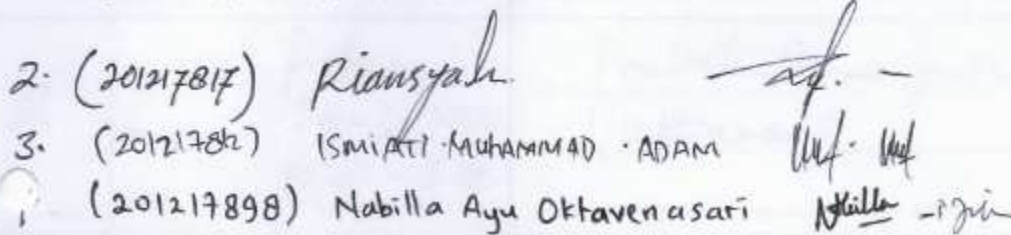 2. (201217817) Riansyah
3. (20121782) ISMIATI MUHAMMAD ADAM
(201217898) Nabilla Ayu Oktavenasari